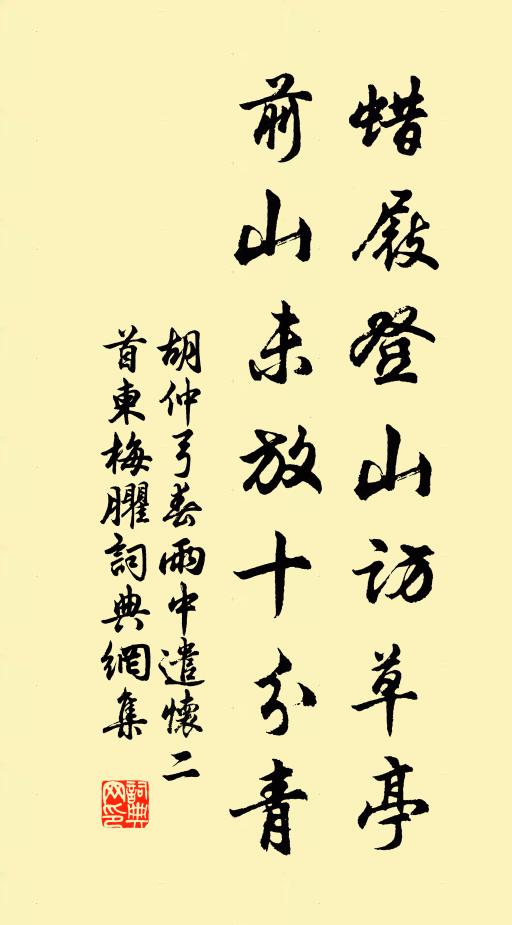 蜡屐登山訪草亭
前山未放十分青
胡仲弓春雨中遣懷二
首東梅臞詞典網集
詞典网印